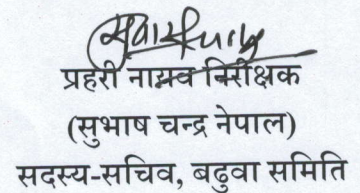 प्रहरी नायव निरीक्षक
(सुभाष चन्द्र नेपाल)
सदस्य-सचिव, बढुवा समिति